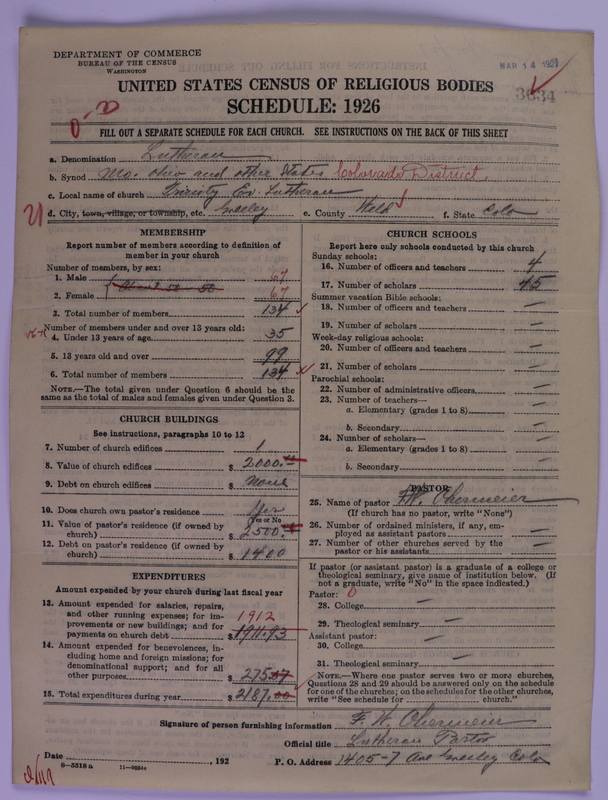 DEPARTMENT OF COMMERCE
BUREAU OF THE CENSUS
WASHINGTON
MAR 14 192
3634
UNITED STATES CENSUS OF RELIGIOUS BODIES
SCHEDULE: 1926
FILL OUT A SEPARATE SCHEDULE FOR EACH CHURCH. SEE INSTRUCTIONS ON THE BACK OF THIS SHEET
a. Denomination Lutheran
b. Synod Mo. Ohio and other States Colorado District
c. Local name of church Trinity Ev. Lutheran
d. City, town, village, or township, etc. Greeley e. County Weld f. State Colo
MEMBERSHIP
Report number of members according to definition of
member in your church
Number of members, by sex:
1. Male 67
About 50 - 50
2. Female 67
3. Total number of members 134
Number of members under and over 13 years old:
4. Under 13 years of age 35
5. 13 years old and over 99
6. Total number of members 134
NOTE.—The total given under Question 6 should be the
same as the total of males and females given under Question 3.
CHURCH BUILDINGS
See instructions, paragraphs 10 to 12
7. Number of church edifices 1
8. Value of church edifices $ 2000.
9. Debt on church edifices $ None
10. Does church own pastor's residence Yes
Yes or No
11. Value of pastor's residence (if owned by
church) $ 2500.
12. Debt on pastor's residence (if owned by
church) $ 1400
EXPENDITURES
Amount expended by your church during last fiscal year
13. Amount expended for salaries, repairs,
and other running expenses; for im-
provements or new buildings; and for
payments on church debt $ 1911.93
1912
14. Amount expended for benevolences, in-
cluding home and foreign missions; for
denominational support; and for all
other purposes $ 275.07
15. Total expenditures during year $ 2187.00
CHURCH SCHOOLS
Report here only schools conducted by this church
Sunday schools:
16. Number of officers and teachers 4
17. Number of scholars 45
Summer vacation Bible schools:
18. Number of officers and teachers —
19. Number of scholars —
Week-day religious schools:
20. Number of officers and teachers —
21. Number of scholars —
Parochial schools:
22. Number of administrative officers —
23. Number of teachers—
a. Elementary (grades 1 to 8) —
b. Secondary —
24. Number of scholars—
a. Elementary (grades 1 to 8) —
b. Secondary —
PASTOR
25. Name of pastor F.W. Obermeier
(If church has no pastor, write "None")
26. Number of ordained ministers, if any, em-
ployed as assistant pastors —
27. Number of other churches served by the
pastor or his assistants —
If pastor (or assistant pastor) is a graduate of a college or
theological seminary, give name of institution below. (If
not a graduate, write "No" in the space indicated.)
Pastor: 0
28. College —
29. Theological seminary —
Assistant pastor: —
30. College —
31. Theological seminary —
NOTE.—Where one pastor serves two or more churches,
Questions 28 and 29 should be answered only on the schedule
for one of the churches; on the schedules for the other churches,
write "See schedule for church."
Signature of person furnishing information F. W. Obermeier
Official title Lutheran Pastor
Date , 192 P. O. Address 1405-7 Ave Greeley Colo
8—5518a